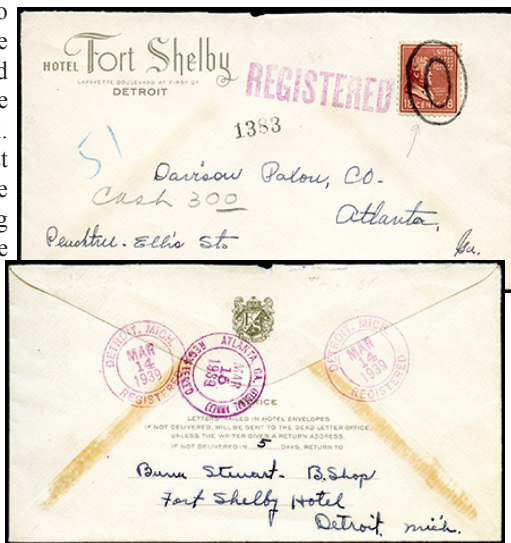 HOTEL Fort Shelby
LAFAYETTE BOULEVARD AT FIRST ST.
DETROIT
REGISTERED
UNITED STATES
18 CENTS 18
1383
51
9
Davison Palou, CO-
Cash 300
Atlanta,
Peachtree- Ellis Sts
Ga.
DETROIT, MICH.
MAR
14
1939
REGISTERED
ATLANTA, GA.
MAR
16
1939
REGISTERED
DETROIT, MICH.
MAR
14
1939
REGISTERED
LETTERS MAILED IN HOTEL ENVELOPES
IF NOT DELIVERED, WILL BE SENT TO THE DEAD LETTER OFFICE,
UNLESS THE WRITER GIVES A RETURN ADDRESS.
IF NOT DELIVERED IN 5 DAYS, RETURN TO
Stewart- B. Shop
Fort Shelby Hotel
Detroit, Mich.